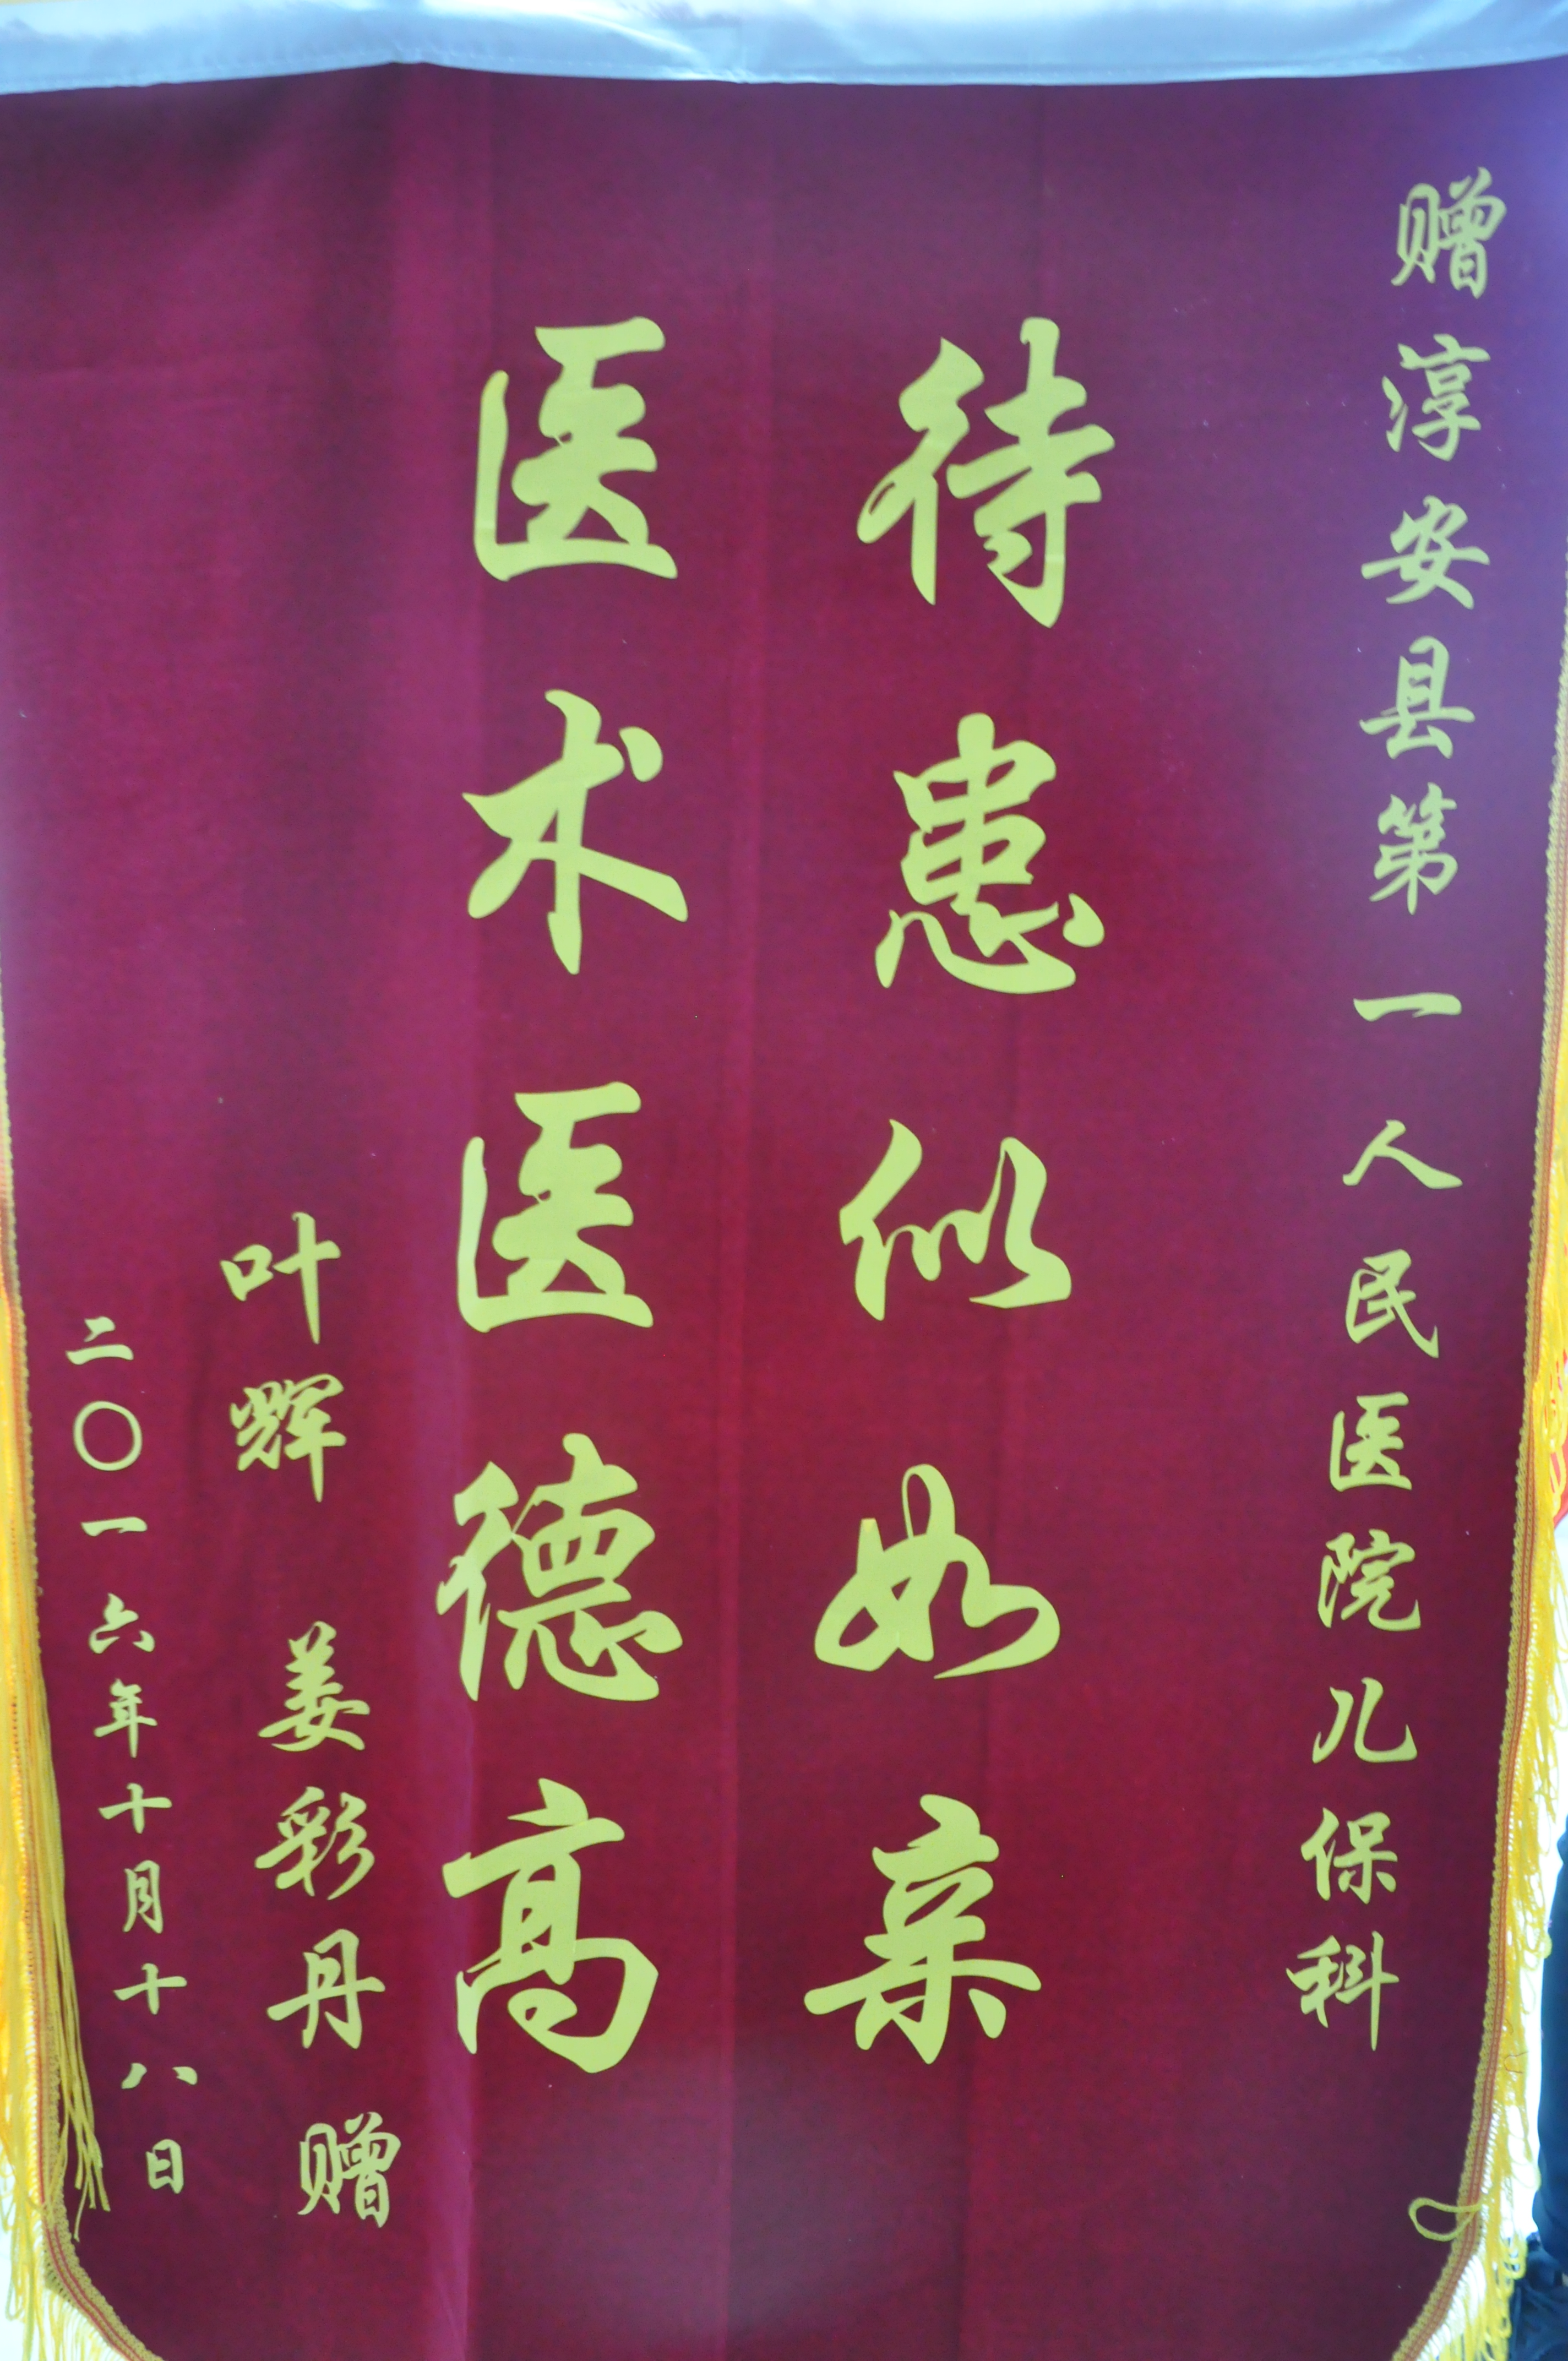 赠淳安县第一人民医院儿保科
待患似如亲
医术医德高
叶辉 姜彩丹 赠
二〇一六年十月十八日